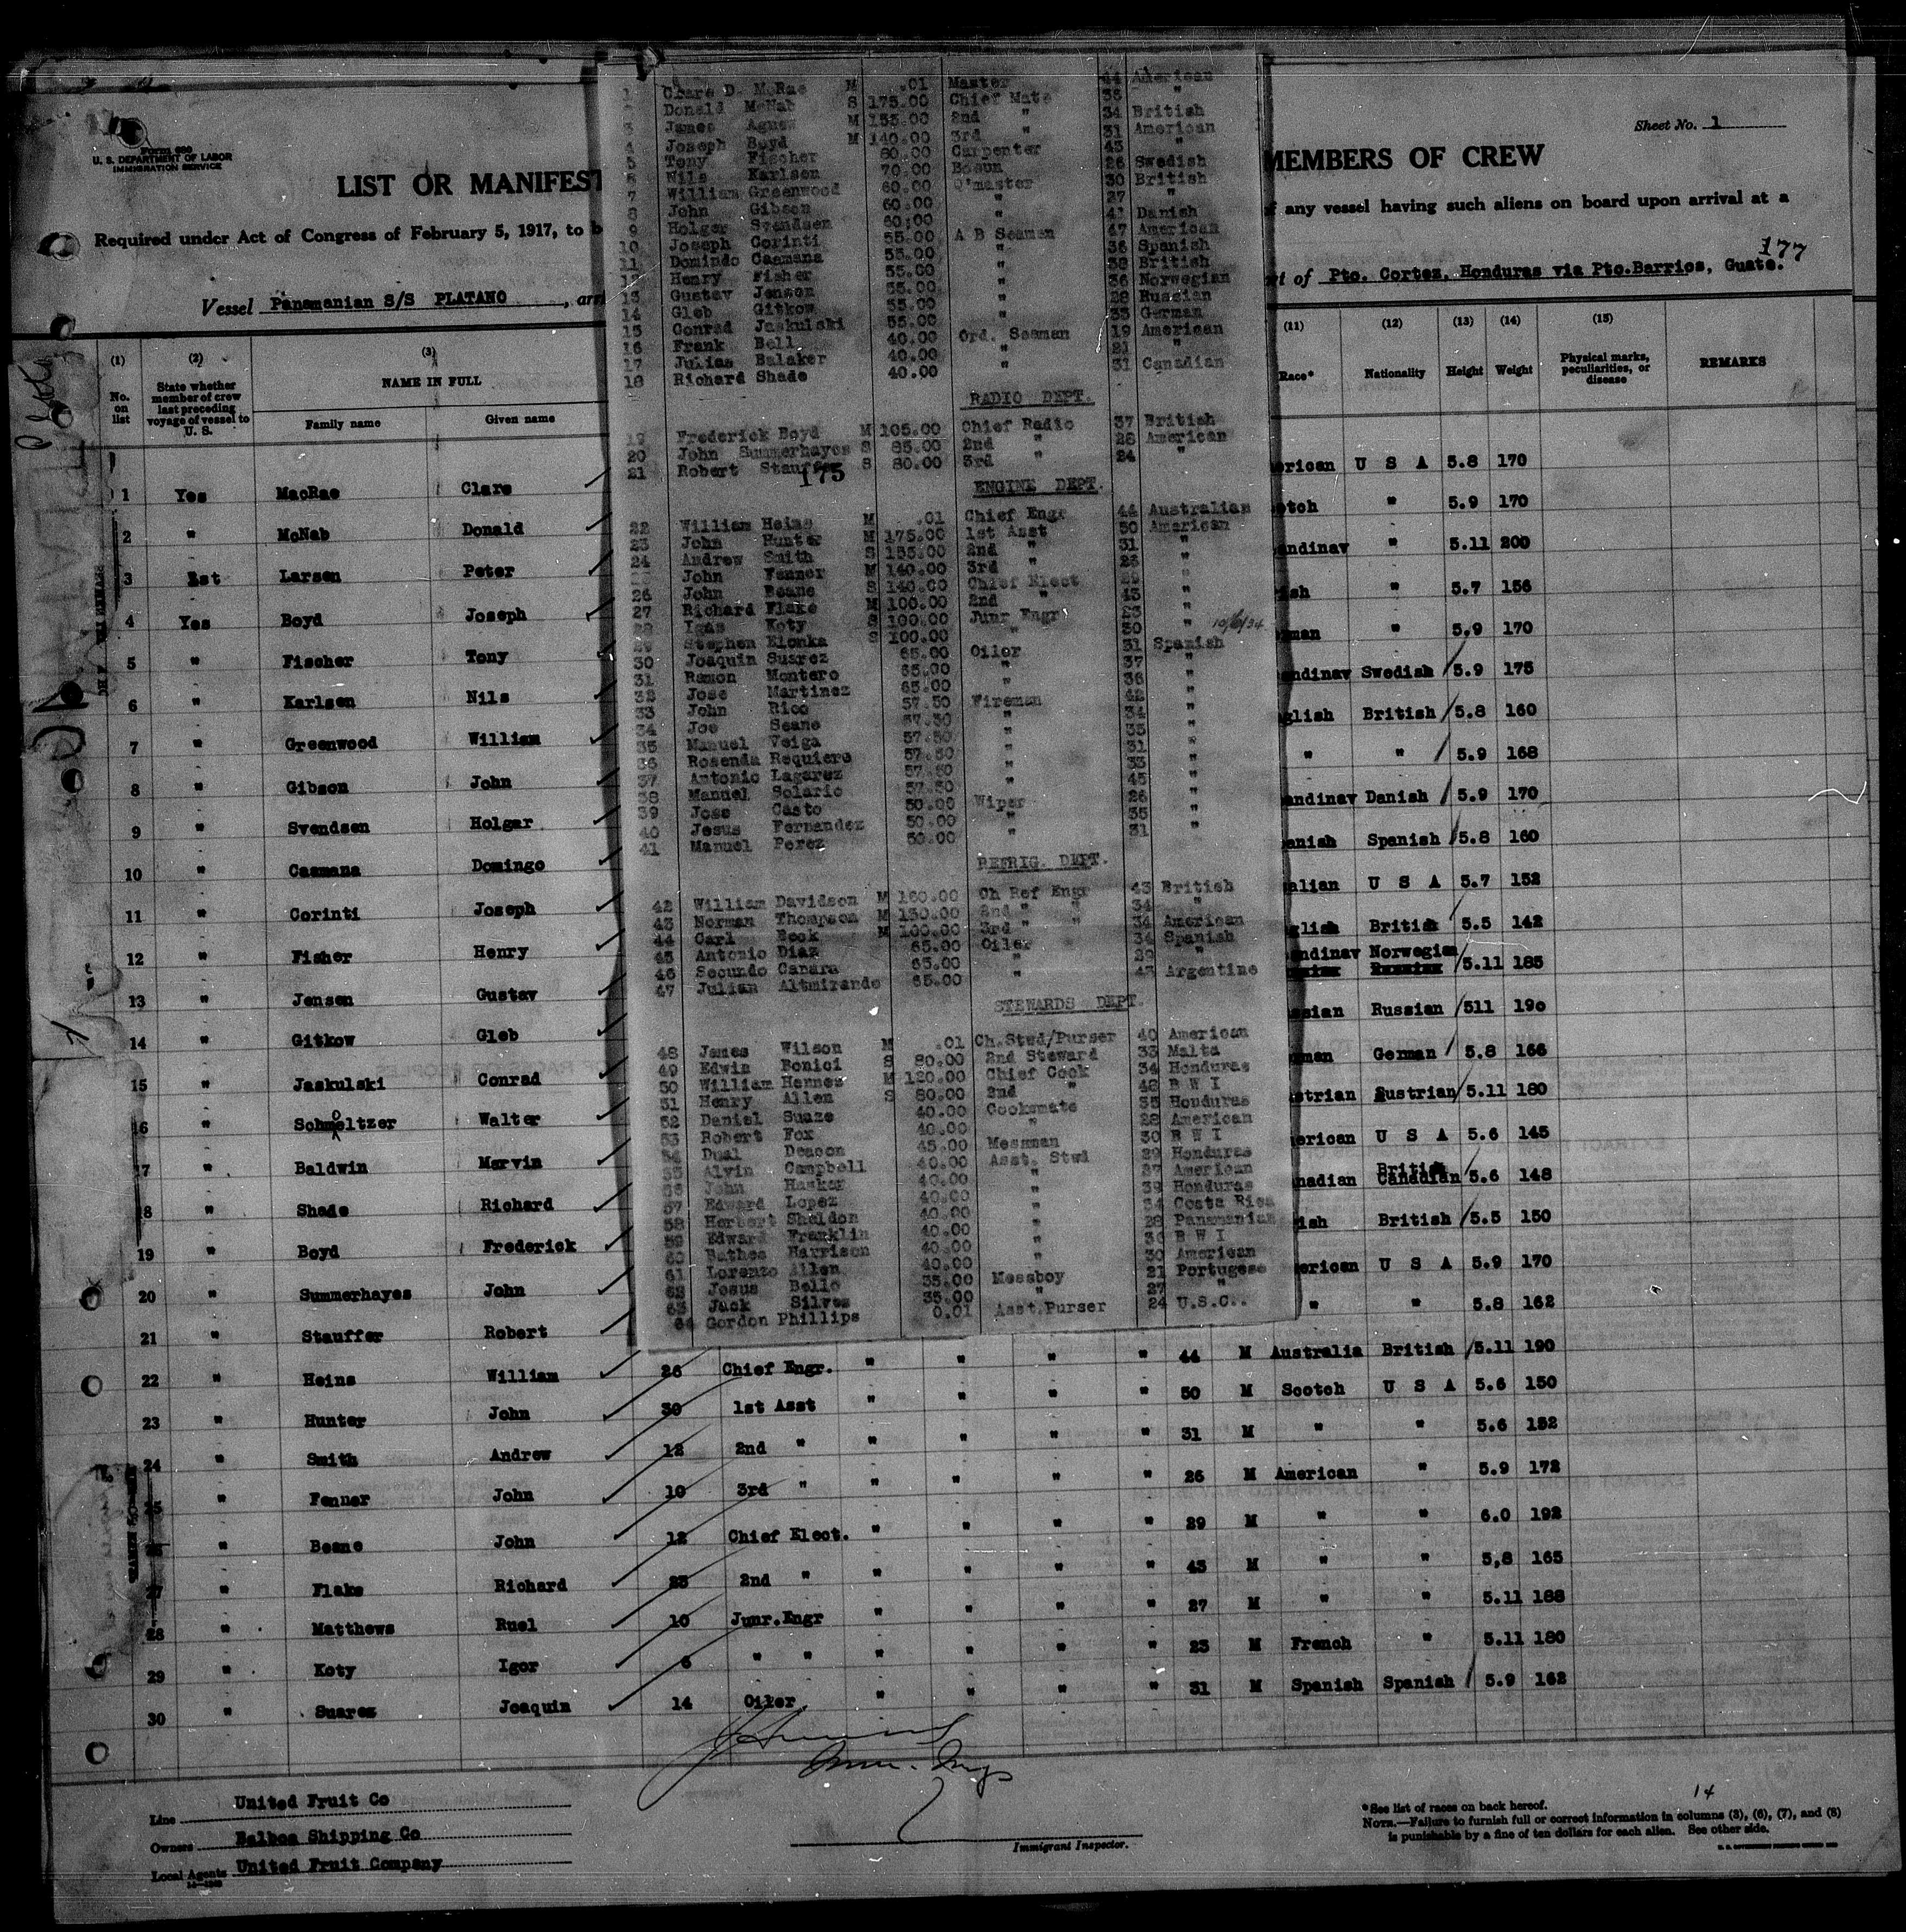 Form 680
U. S. DEPARTMENT OF LABOR
IMMIGRATION SERVICE
Sheet No. 1
LIST OR MANIFEST
MEMBERS OF CREW
Required under Act of Congress of February 5, 1917, to b
any vessel having such aliens on board upon arrival at a
177
Vessel Panamanian S/S PLATANO , arri
of Pto. Cortez, Honduras via Pto.Barrios, Guate.
(1) (2) (3) (11) (12) (13) (14) (15)
No. on list
State whether member of crew last preceding voyage of vessel to U. S.
NAME IN FULL
Family name Given name
Race* Nationality Height Weight Physical marks, peculiarities, or disease REMARKS
1 Clare D. McRae M .01 Master 44 American
Donald McNab S 175.00 Chief Mate 35 "
3 James Agnew M 155.00 2nd " 34 British
4 Joseph Boyd M 140.00 3rd " 31 American
5 Tony Fischer 80.00 Carpenter 43 "
6 Nils Karlsen 70.00 Bosun 26 Swedish
7 William Greenwood 60.00 Q'master 30 British
8 John Gibson 60.00 " 27 "
9 Holger Svendsen 60.00 " 41 Danish
10 Joseph Corinti 55.00 A B Seaman 47 American
11 Domindo Caamana 55.00 " 36 Spanish
12 Henry Fisher 55.00 " 38 British
13 Gustav Jensen 55.00 " 36 Norwegian
14 Gleb Gitkow 55.00 " 28 Russian
15 Conrad Jaskulski 55.00 " 33 German
16 Frank Bell 40.00 Ord. Seaman 19 American
17 Julian Balaker 40.00 " 21 "
18 Richard Shade 40.00 " 31 Canadian
RADIO DEPT.
19 Frederick Boyd M 105.00 Chief Radio 37 British
20 John Summerhayes S 85.00 2nd " 28 American
21 Robert Stauffer S 80.00 3rd " 24 "
175
ENGINE DEPT.
22 William Heins M .01 Chief Engr 44 Australian
23 John Hunter M 175.00 1st Asst 50 American
24 Andrew Smith S 155.00 2nd " 31 "
John Fenner M 140.00 3rd " 26 "
26 John Beane S 140.00 Chief Elect 29 "
27 Richard Flake M 100.00 2nd " 43 "
28 Igas Koty S 100.00 Junr Engr 23 "
29 Stephen Elonka S 100.00 " 30 " 10/6/34
30 Joaquin Suarez 65.00 Oiler 31 Spanish
31 Ramon Montero 65.00 " 37 "
32 Jose Martinez 65.00 " 36 "
33 John Rico 57.50 Fireman 42 "
34 Joe Seane 57.50 " 34 "
35 Manuel Veiga 57.50 " 35 "
36 Rosenda Requiere 57.50 " 31 "
37 Antonio Lagarez 57.50 " 33 "
38 Manuel Solario 57.50 " 45 "
39 Jose Casto 50.00 Wiper 26 "
40 Jesus Fernandez 50.00 " 35 "
41 Manuel Perez 50.00 " 31 "
REFRIG. DEPT.
42 William Davidson M 160.00 Ch Ref Engr 43 British
43 Norman Thompson M 130.00 2nd " " 34 "
44 Carl Beck M 100.00 3rd " " 34 American
45 Antonio Diaz 65.00 Oiler 34 Spanish
46 Secundo Canara 65.00 " 29 "
47 Julian Altmirande 65.00 " 43 Argentine
STEWARDS DEPT.
48 James Wilson M .01 Ch.Stwd/Purser 40 American
49 Edwin Bonici S 80.00 2nd Steward 33 Malta
50 William Hennes M 120.00 Chief Cook 34 Honduras
51 Henry Allen S 80.00 2nd " 48 B W I
52 Daniel Suaze 40.00 Cooksmate 35 Honduras
53 Robert Fox 40.00 " 28 American
54 Dual Deacon 45.00 Messman 30 B W I
55 Alvin Campbell 40.00 Asst. Stwd 29 Honduras
56 John Hasker 40.00 " 27 American
57 Edward Lopez 40.00 " 39 Honduras
58 Herbert Sheldon 40.00 " 34 Costa Rica
59 Edward Franklin 40.00 " 28 Panamanian
60 Bathes Harrison 40.00 " 36 B W I
61 Lorenzo Allen 40.00 " 30 American
62 Jesus Bello 35.00 Messboy 21 Portugese
63 Jack Silves 35.00 " 27 "
64 Gordon Phillips 0.01 Asst.Purser 24 U.S.C..
1 Yes MacRae Clare erican U S A 5.8 170
2 " McNab Donald otch " 5.9 170
3 1st Larsen Peter andinav " 5.11 200
4 Yes Boyd Joseph ish " 5.7 156
5 " Fischer Tony man " 5.9 170
6 " Karlsen Nils andinav Swedish 5.9 175
7 " Greenwood William glish British 5.8 160
8 " Gibson John " " 5.9 168
9 " Svendsen Holger andinav Danish 5.9 170
10 " Caamana Domingo anish Spanish 5.8 160
11 " Corinti Joseph alian U S A 5.7 152
12 " Fisher Henry glish British 5.5 142
13 " Jensen Gustav andinav Norwegian 5.11 185
14 " Gitkow Gleb ssian Russian 511 190
15 " Jaskulski Conrad man German 5.8 166
16 " Schmoeltzer Walter strian Austrian 5.11 180
17 " Baldwin Marvin erican U S A 5.6 145
18 " Shade Richard nadian British Canadian 5.6 148
19 " Boyd Frederick ish British 5.5 150
20 " Summerhayes John erican U S A 5.9 170
21 " Stauffer Robert " " 5.8 162
22 " Heins William 26 Chief Engr. " " " " 44 M Australia British 5.11 190
23 " Hunter John 30 1st Asst " " " " 50 M Scotch U S A 5.6 150
24 " Smith Andrew 12 2nd " " " " " 31 M " " 5.6 152
25 " Fenner John 10 3rd " " " " " 26 M American " 5.9 172
26 " Beane John 12 Chief Elect. " " " " 29 M " " 6.0 192
27 " Flake Richard 23 2nd " " " " " 43 M " " 5,8 165
28 " Matthews Ruel 10 Junr.Engr " " " " 27 M " " 5.11 188
29 " Koty Igor 6 " " " " " " 23 M French " 5.11 180
30 " Suarez Joaquin 14 Oiler " " " " 31 M Spanish Spanish 5.9 162
Line United Fruit Co
Owners Balboa Shipping Co
Local Agents United Fruit Company
Imm. Insp
Immigrant Inspector.
14
*See list of races on back hereof.
NOTE.—Failure to furnish full or correct information in columns (3), (6), (7), and (8)
is punishable by a fine of ten dollars for each alien. See other side.